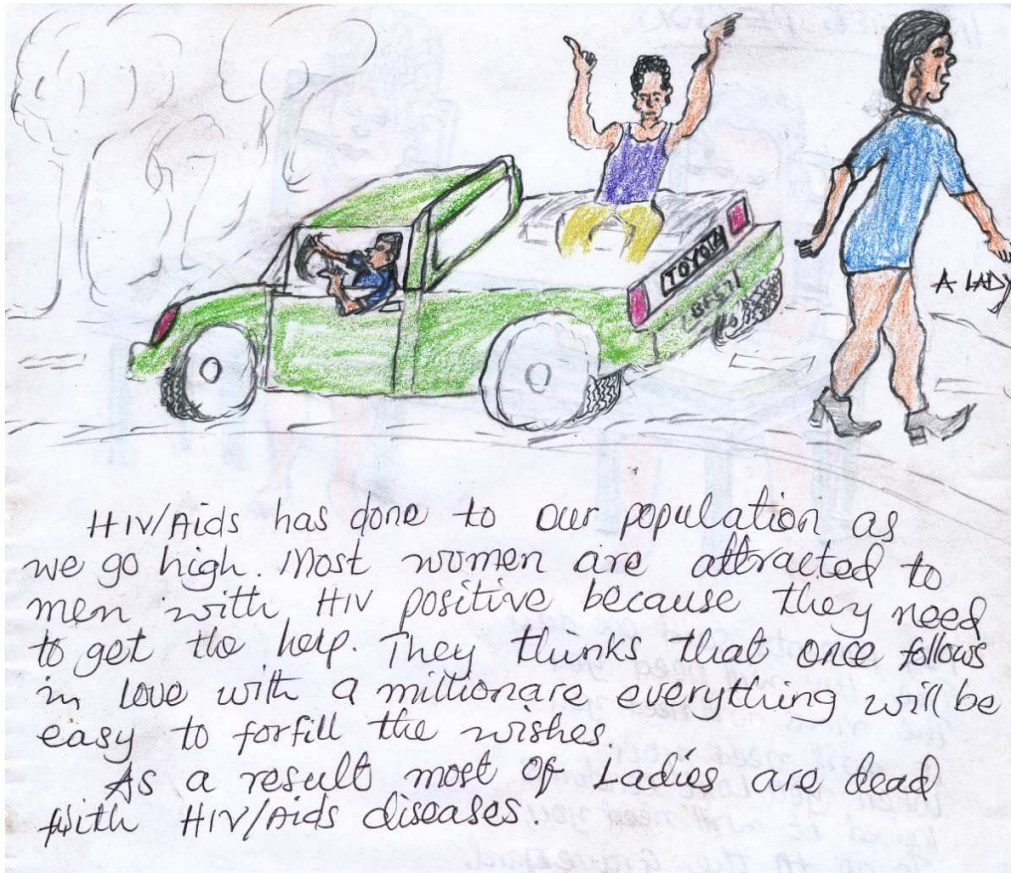 TOYOTA
A LADY
HIV/Aids has done to our population as
we go high. Most women are attracted to
men with HIV positive because they need
to get the help. They thinks that once follows
in love with a millionare everything will be
easy to forfill the wishes.
As a result most of Ladies are dead
with HIV/Aids diseases.